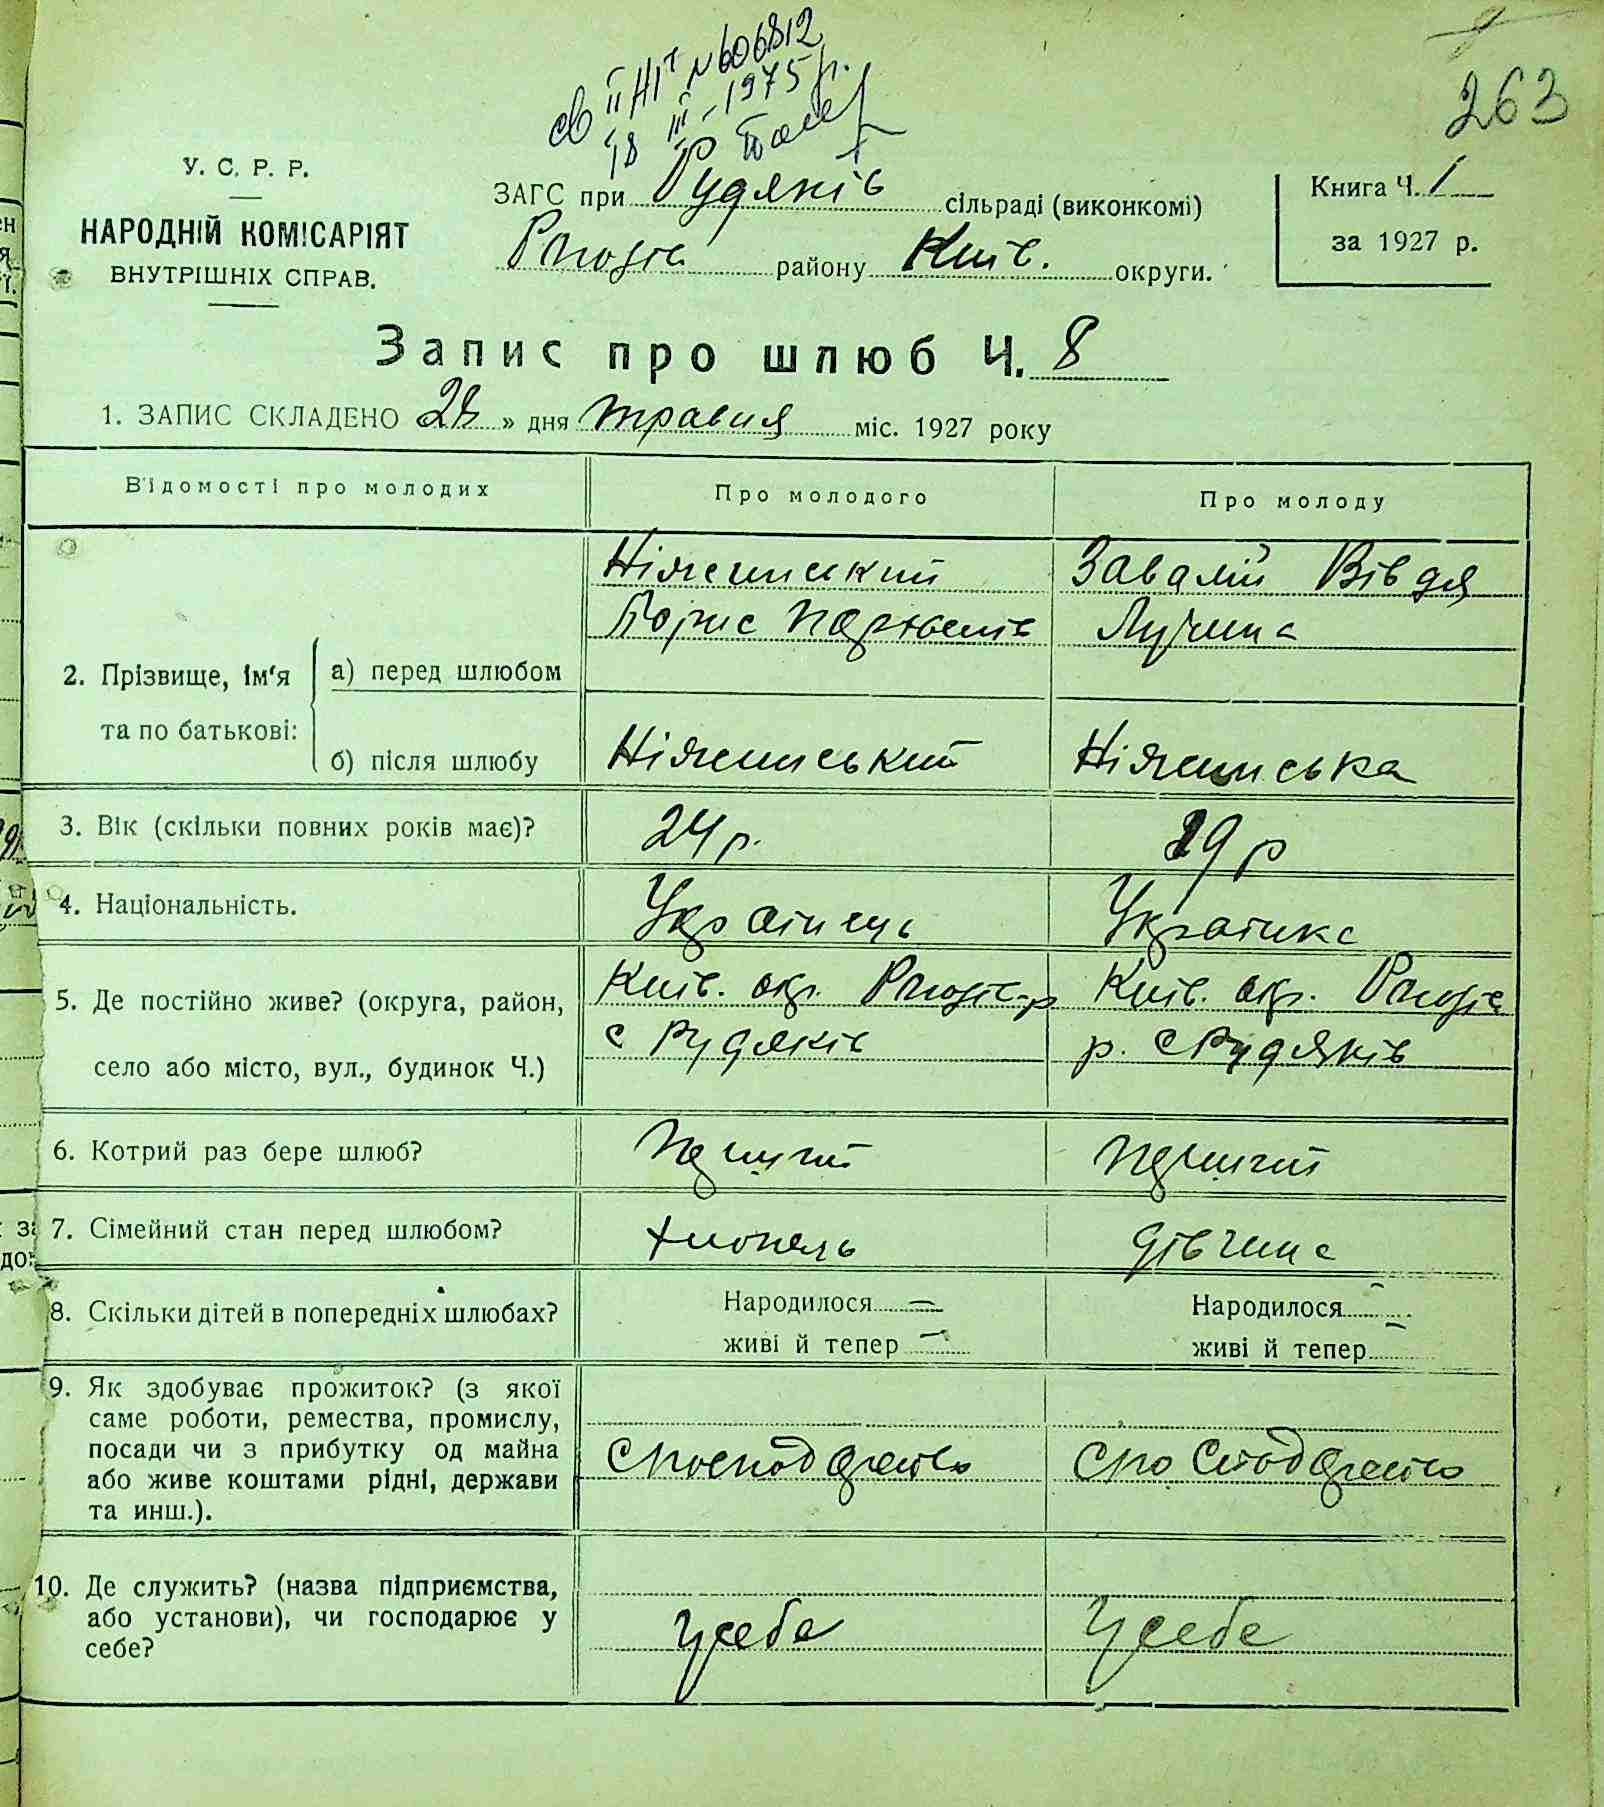 св II НГ № 606812
18 III - 1975 р.
263
У. С. Р. Р.
НАРОДНІЙ КОМІСАРІЯТ
ВНУТРІШНІХ СПРАВ.
ЗАГС при Рудяків сільраді (виконкомі)
району Київ. округи.
Книга Ч. 1
за 1927 р.
Запис про шлюб Ч. 8
1. ЗАПИС СКЛАДЕНО » дня травня міс. 1927 року
Відомості про молодих Про молодого Про молоду
Ніжинський Завалій Вівдя
Борис
2. Прізвище, ім'я та по батькові:
а) перед шлюбом
б) після шлюбу Ніжинський Ніжинська
3. Вік (скільки повних років має)? 24 р. 19 р
4. Національність. Українець Українка
5. Де постійно живе? (округа, район, Київ. окр. Київ. окр.
село або місто, вул., будинок Ч.) с Рудяків р. с Рудяків
6. Котрий раз бере шлюб? перший перший
7. Сімейний стан перед шлюбом? хлопець дівчина
8. Скільки дітей в попередніх шлюбах? Народилося — Народилося —
живі й тепер — живі й тепер —
9. Як здобуває прожиток? (з якої
саме роботи, ремества, промислу,
посади чи з прибутку од майна
або живе коштами рідні, держави
та инш.).
10. Де служить? (назва підприємства,
або установи), чи господарює у
себе? у себе у себе